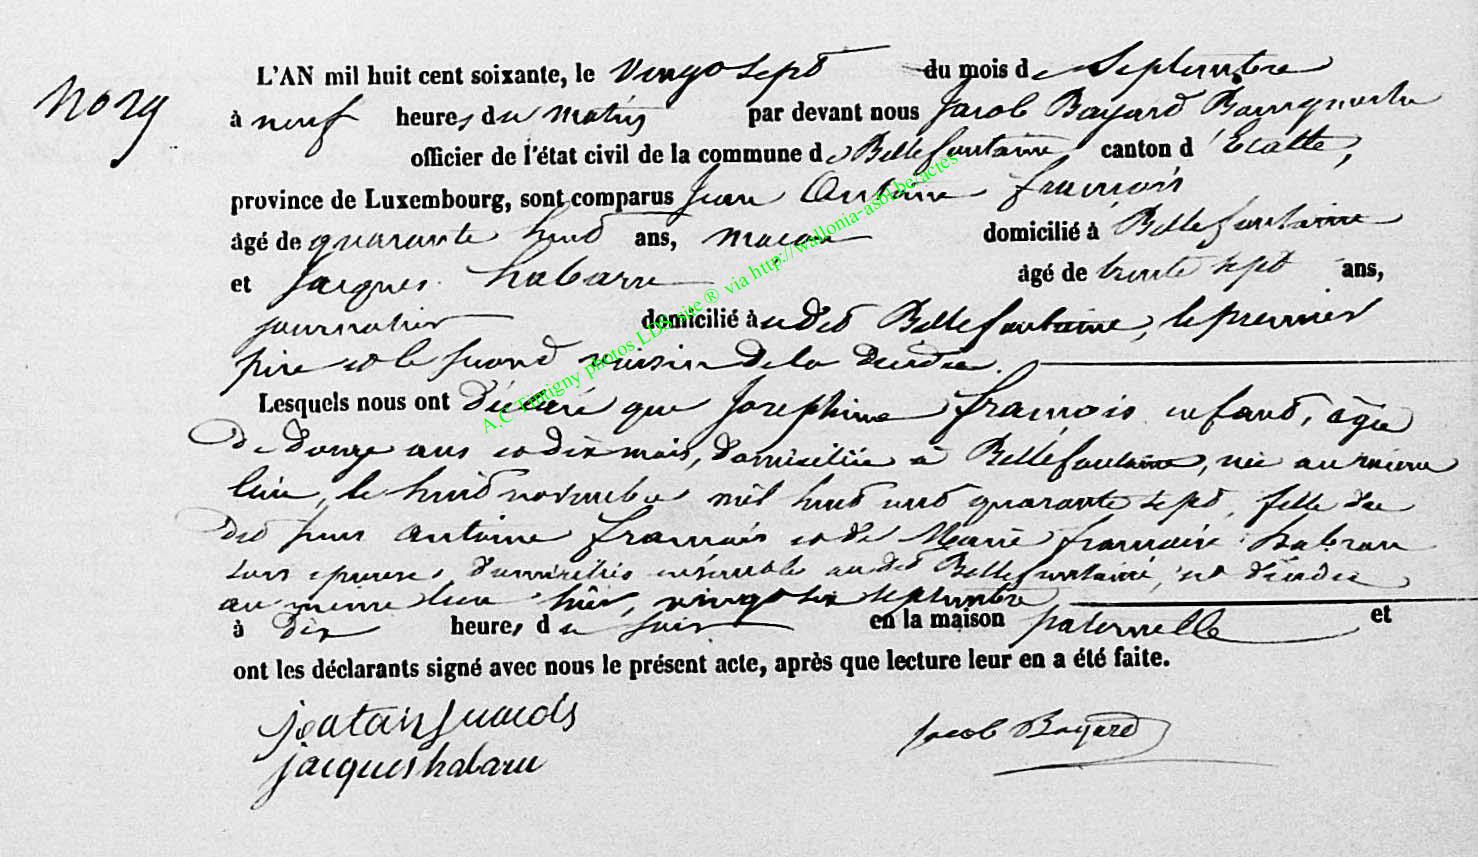 L'AN mil huit cent soixante, le vingt sept du mois de Septembre
à neuf heures du matin par devant nous Jacob Bayard Bourgmestre
officier de l'état civil de la commune de Bellefontaine canton d'Etalle,
province de Luxembourg, sont comparus Jean Antoine françois
âgé de quarante huit ans, maçon domicilié à Bellefontaine
et Jacques habaru âgé de trente sept ans,
journalier domicilié à udit Bellefontaine, le premier
père et le second voisin de la décédée.
Lesquels nous ont déclaré que Josephine françois enfant, âgée
de douze ans et dix mois, domiciliée à Bellefontaine, née au même
lieu, le huit novembre mil huit cent quarante sept, fille du
dit Jean Antoine françois et de Marie françoise
époux, domiciliés ensemble au dit Bellefontaine, est décédée
au même lieu hier, vingt six septembre
à dix heures du soir en la maison paternelle et
ont les déclarants signé avec nous le présent acte, après que lecture leur en a été faite.
jacques habaru
Jacob Bayard
A.C Tintigny photos LDS site ® via http://wallonia-asbl.be/actes